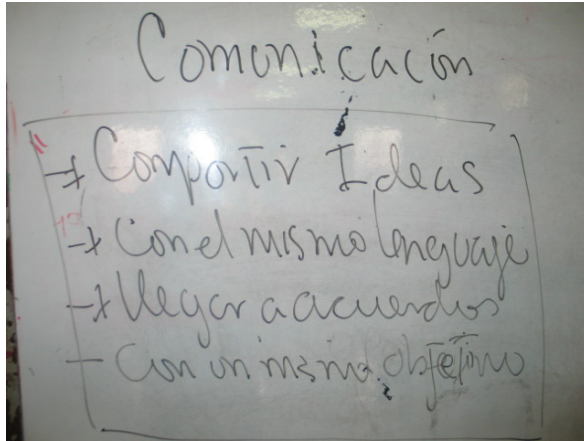 Comunicación
-* Compartir Ideas
-* Con el mismo lenguaje
-* Llegar a acuerdos
- Con un mismo objetivo